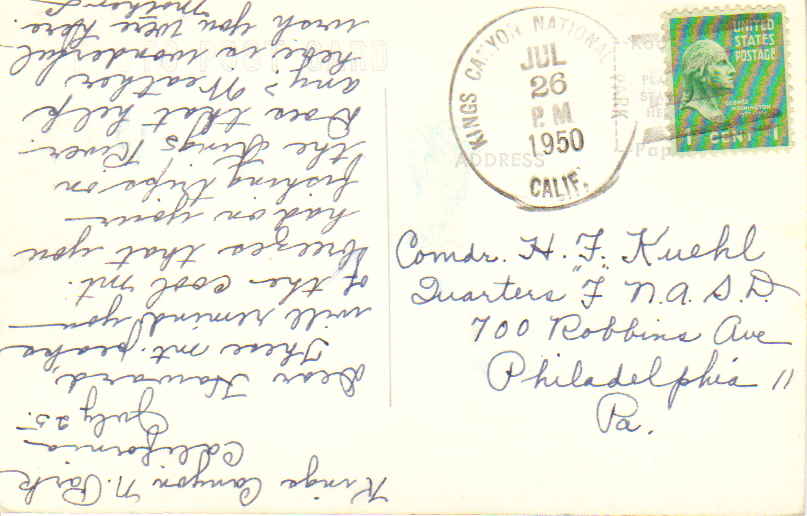 Kings Canyon N. Park
California
July 25.
Dear Howard,
These mt. peaks
will remind you
of the cool mt.
breezes that you
had on your
fishing trips on
the Kings River.
Does that help
any? Weather
here is wonderful
wish you were here.
Mother
KINGS CANYON NATIONAL PARK
JUL
26
P.M
1950
CALIF.
UNITED
STATES
POSTAGE
GEORGE
WASHINGTON
1 CENT 1
ADDRESS
Comdr. H. F. Kuehl
Quarters "F" N.A.S.D.
700 Robbins Ave
Philadelphia 11
Pa.